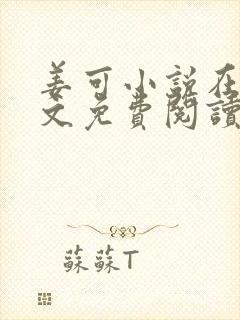 姜可小說在
文免費閱讀
蘇蘇T